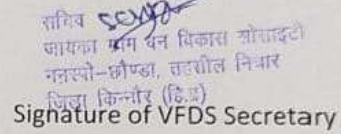 सचिव
जायका ग्राम वन विकास सोसाइटी
छौण्डा, तहसील निचार
जिला किन्नौर (हि.प्र)
Signature of VFDS Secretary